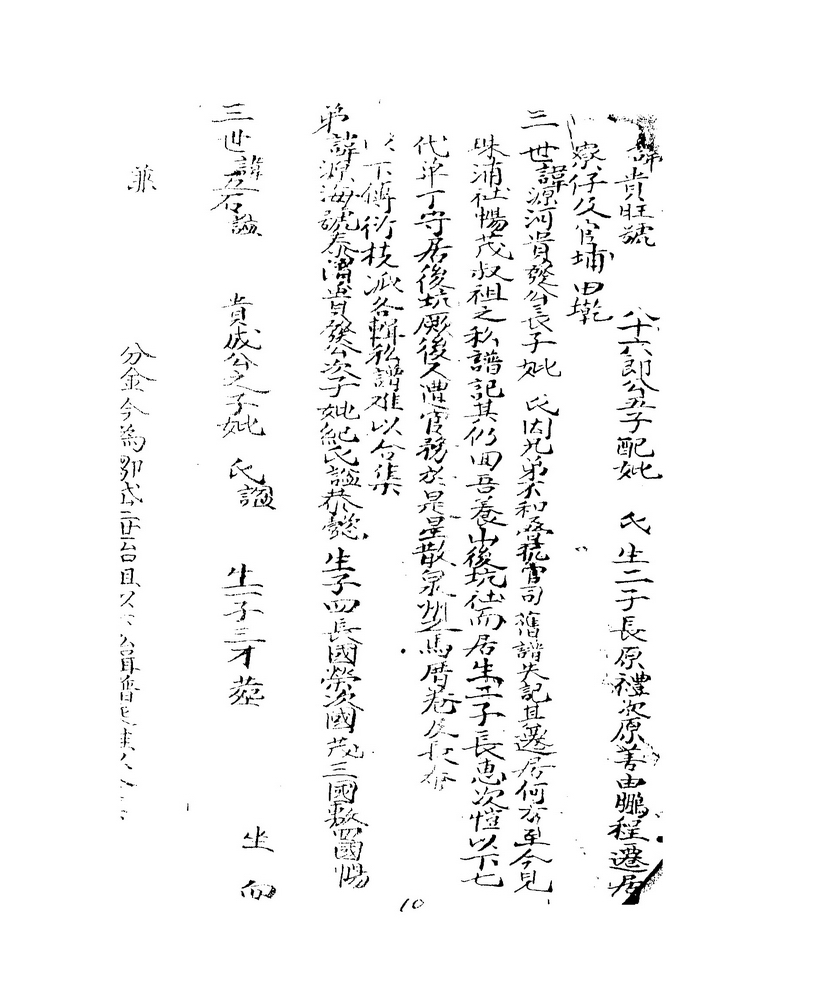 諱貴旺號 八十六郎公五子配妣 氏生二子長原禮次原善由鵬程遷居
寮仔及官埔田墘
三世諱源河貴發公長子妣 氏因兄弟不和疊控官司舊譜失記且遷居何方至今見
珠浦社暢茂叔祖之私譜記其仍回吾養山後坑社而居生二子長惠次愷以下七
代單丁守居後坑厥後又遭官務於是星散泉州之馬厝巷及
以下傳衍枝派各輯私譜难以合集
弟諱源海號泰濶貴發公次子妣紀氏謚恭懿生子四長國榮次國茂三國敷四國暢
三世諱石謚 貴成公之子妣 氏謚 生一子三才葬 坐 向
兼 分金今為
10